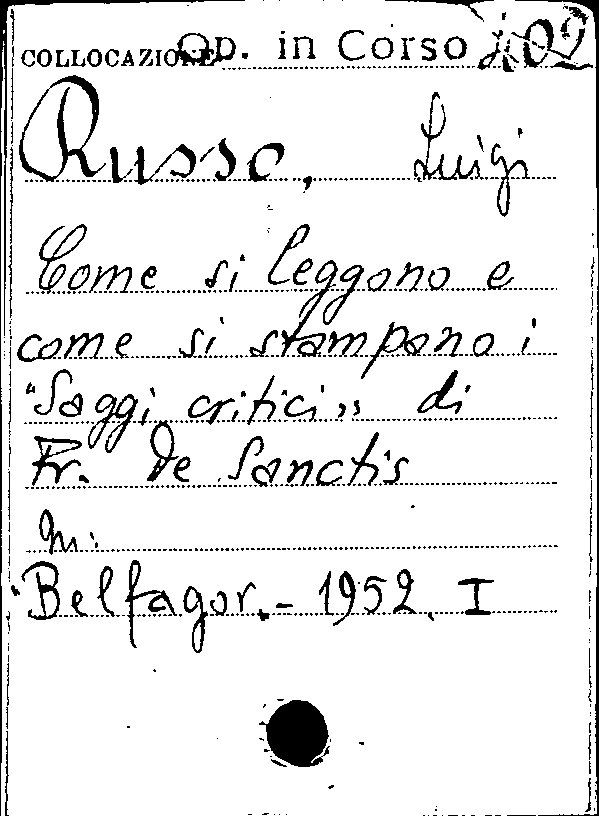 COLLOCAZIONE Op. in Corso 402
Russo, Luigi
Come si leggono e
come si stampano i
"Saggi critici" di
Fr. De Sanctis
In:
"Belfagor. - 1952. I